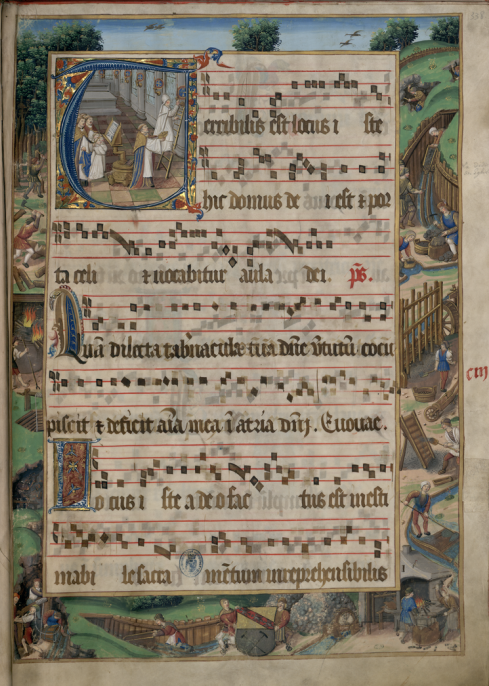 Terribilis est locus i ste
hic domus de i est & por
ta celi & uocabitur aula dei. ps.
Quā dilecta tab̄nacula tua dn̄e v̄tutū cōcu
piscit & deficit aīa mea ī atria dn̄j. Euouae.
Locus i ste a deo fac tus est inesti
mabi le sacra mētum inreprehensibilis